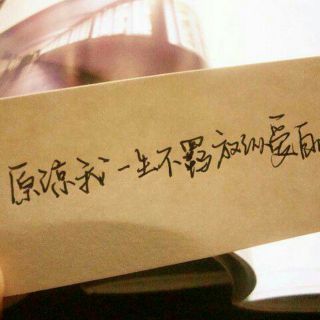 原谅我一生不羁放纵爱自